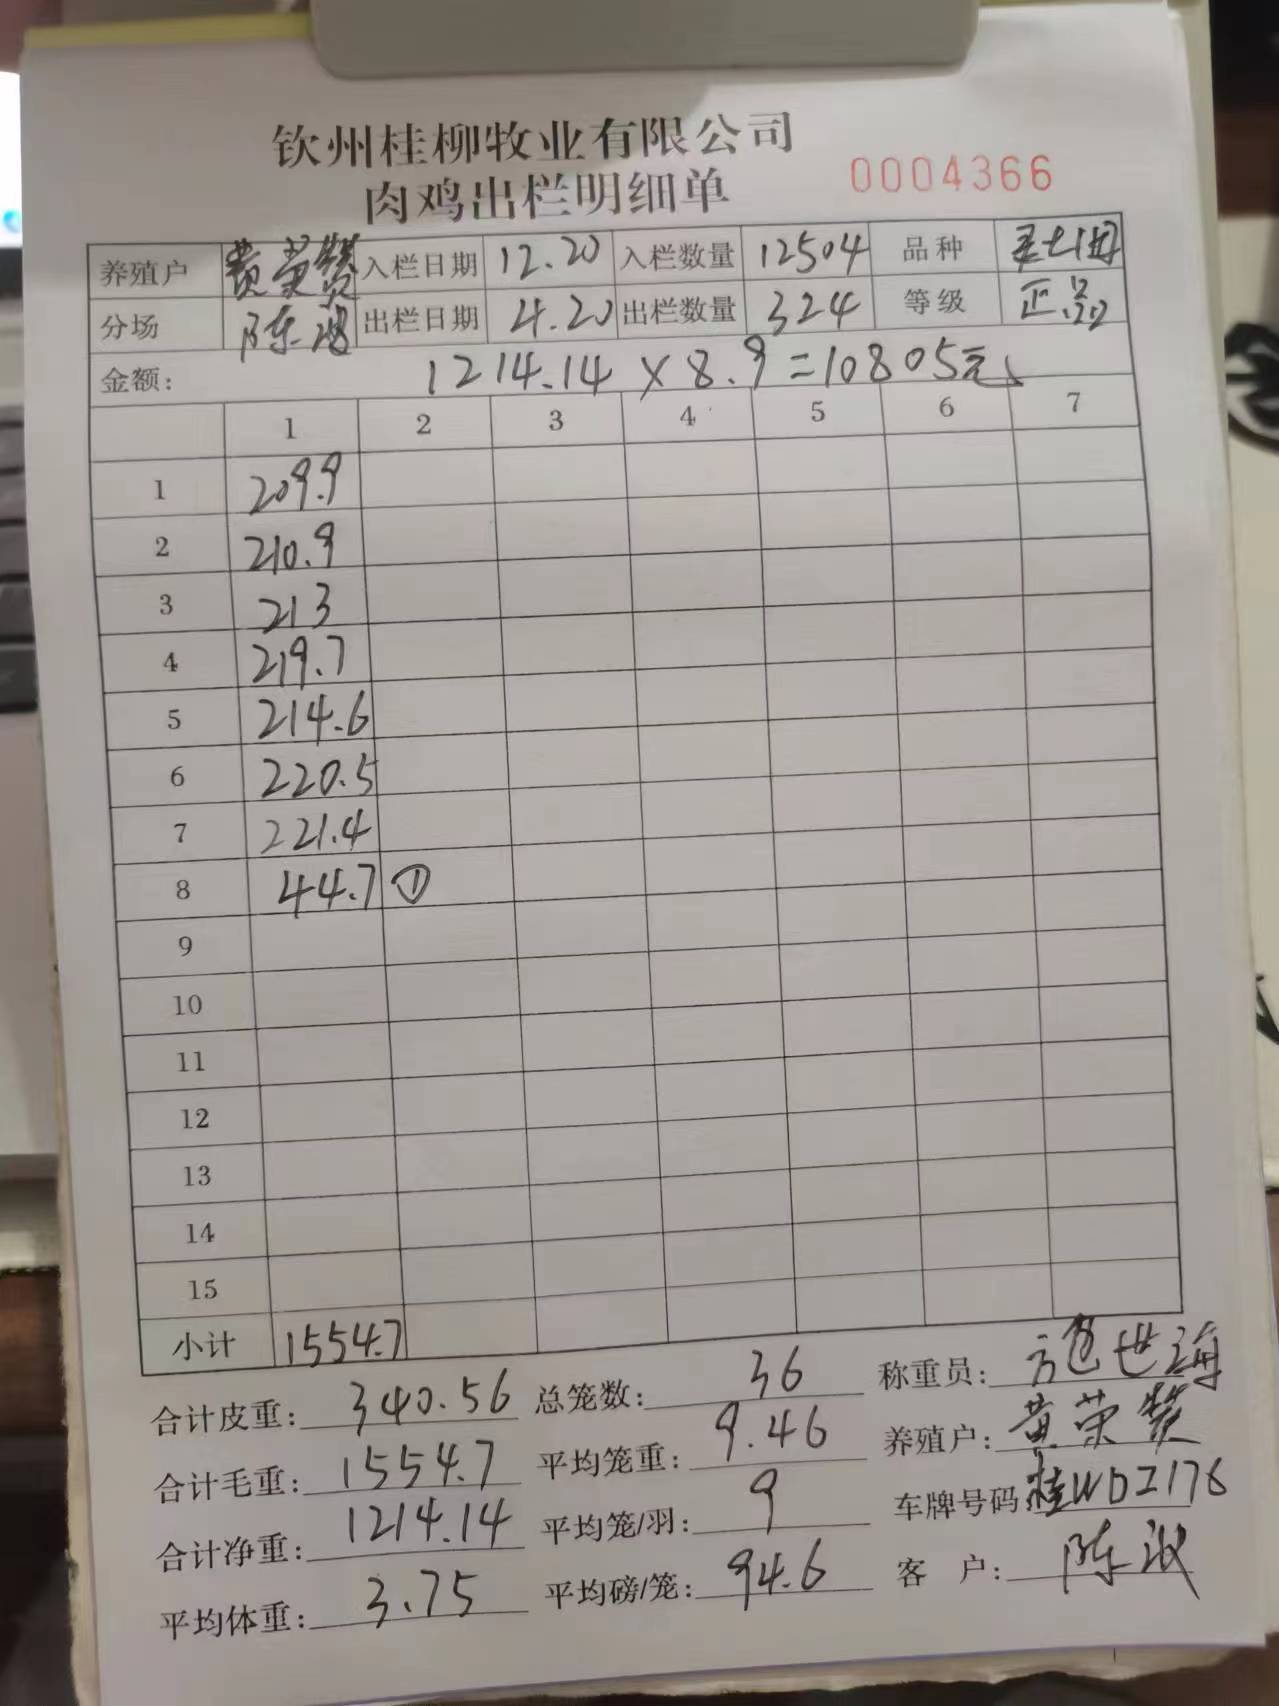 钦州桂柳牧业有限公司
肉鸡出栏明细单 0004366
养殖户 黄荣赞 入栏日期 12.20 入栏数量 12504 品种
分场 陈 出栏日期 4.20 出栏数量 324 等级 正品
金额: 1214.14 × 8.9 = 10805元
1 2 3 4 5 6 7
1 209.9
2 210.9
3 213
4 219.7
5 214.6
6 220.5
7 221.4
8 44.7 ①
9
10
11
12
13
14
15
小计 1554.7
合计皮重: 340.56 总笼数: 36 称重员: 世海
合计毛重: 1554.7 平均笼重: 9.46 养殖户: 黄荣赞
合计净重: 1214.14 平均笼/羽: 9 车牌号码 桂WDZ176
平均体重: 3.75 平均磅/笼: 94.6 客户: 陈